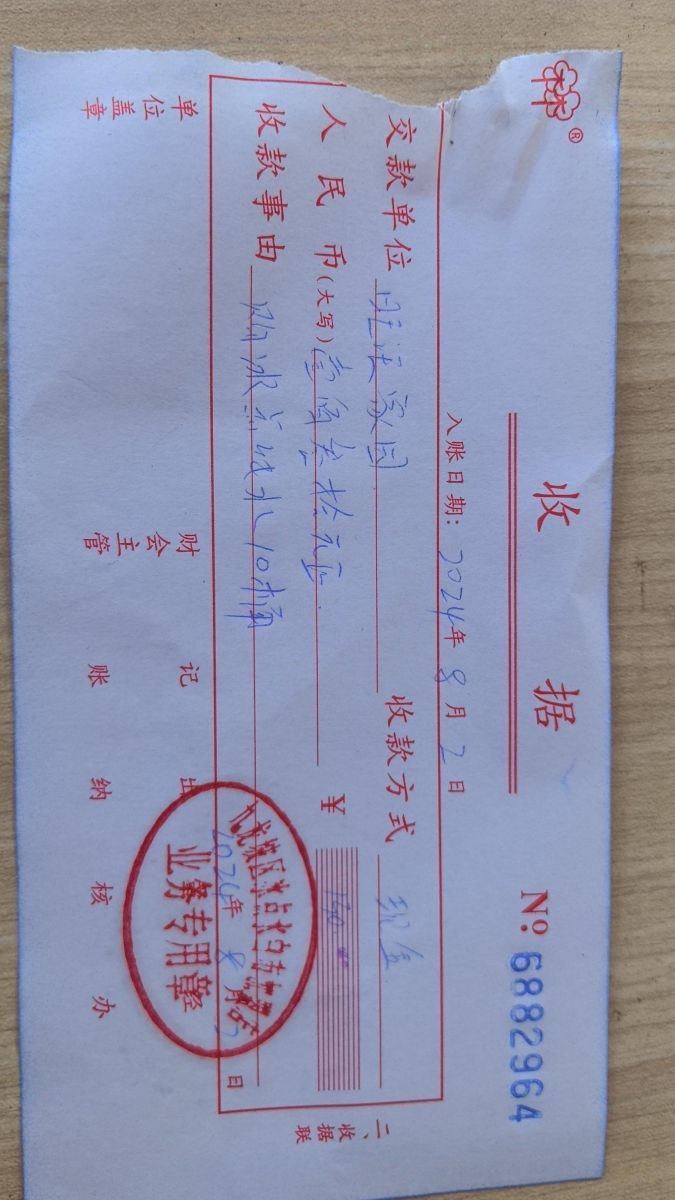 收 据
№: 6882964
入账日期: 2024年 8月 2日
交款单位 旺江家园 收款方式 现金
人民币(大写) 壹佰叁拾元正 ¥ 130.00
收款事由 购冰点纯水10桶
2024年 8月 日
业务专用章
单位盖章 财会主管 记账 出纳 核 经办
二、收据联